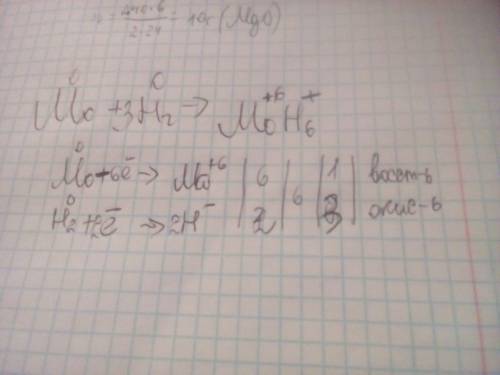 2·40·6 / 2·24 = 10г (MgO)
Mo⁰ + 3H₂⁰ → Mo⁺⁶H₆⁺
Mo⁰ + 6ē → Mo⁺⁶ | 6 | 6 | 1 | восст-ь
H₂⁰ + 2ē → 2H⁻ | 2 | | 3 | окис-ь